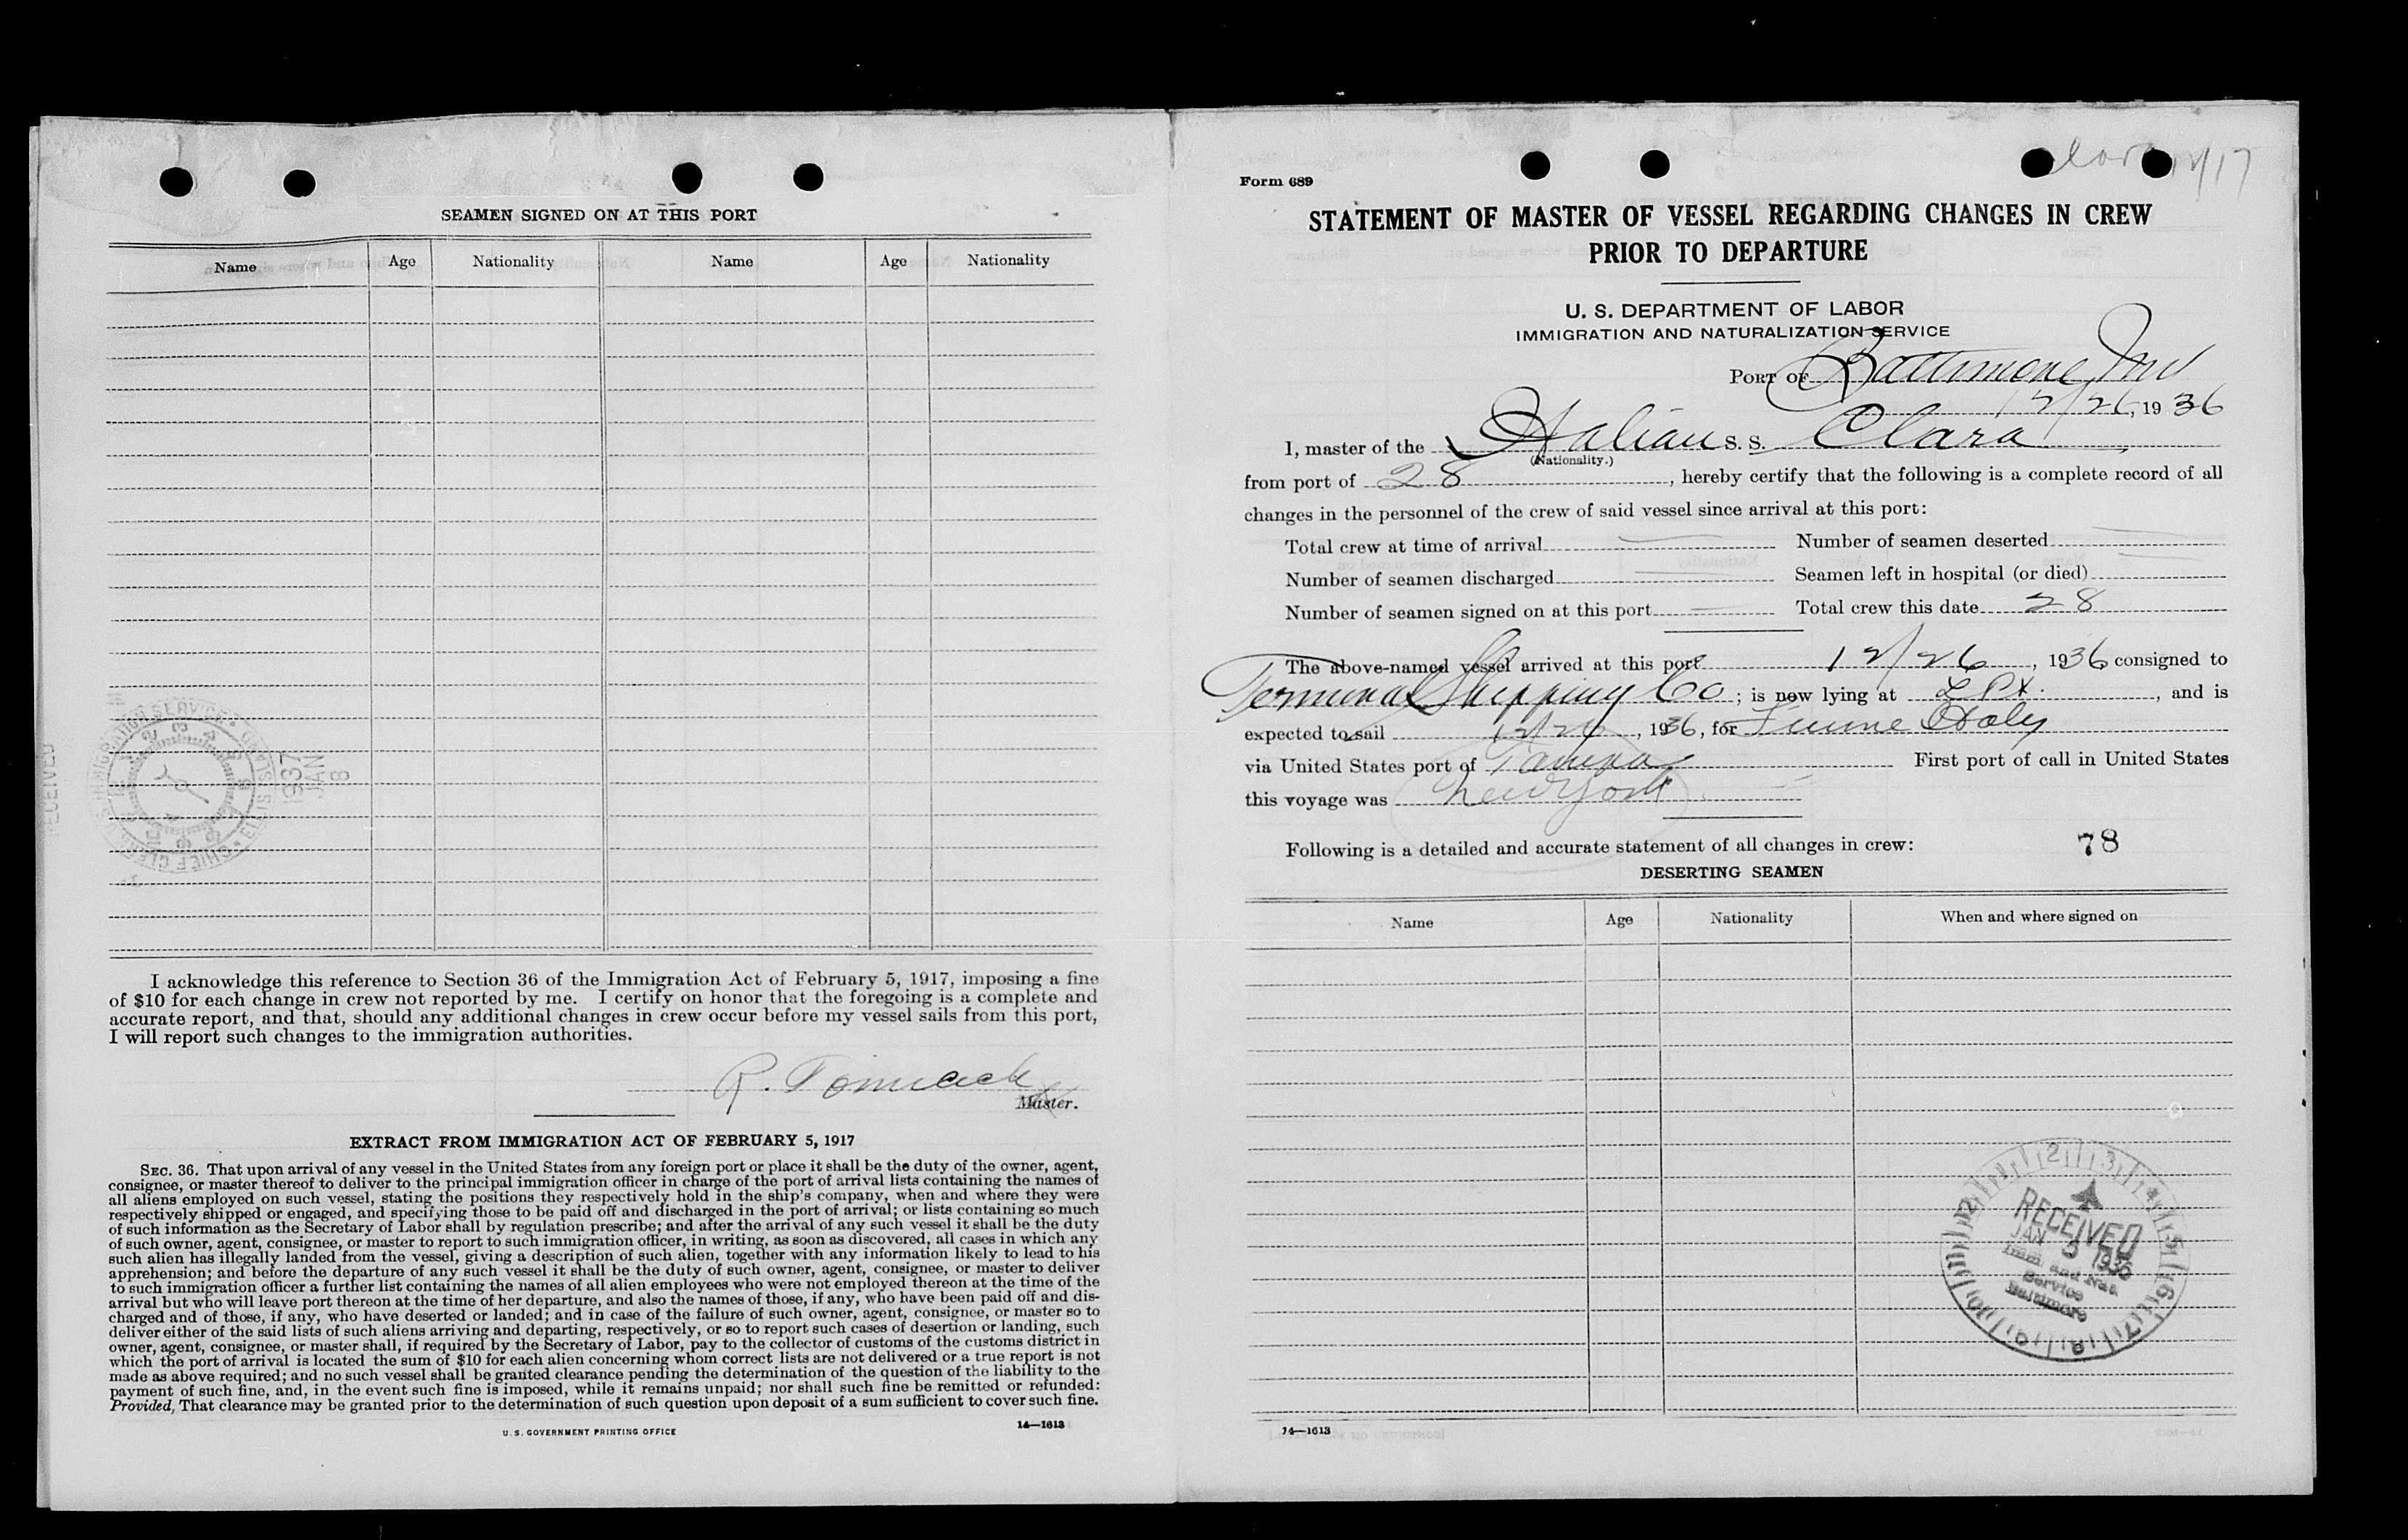 SEAMEN SIGNED ON AT THIS PORT
Name Age Nationality Name Age Nationality
RECEIVED
1937
JAN
8
I acknowledge this reference to Section 36 of the Immigration Act of February 5, 1917, imposing a fine
of $10 for each change in crew not reported by me. I certify on honor that the foregoing is a complete and
accurate report, and that, should any additional changes in crew occur before my vessel sails from this port,
I will report such changes to the immigration authorities.
R.
Master.
EXTRACT FROM IMMIGRATION ACT OF FEBRUARY 5, 1917
SEC. 36. That upon arrival of any vessel in the United States from any foreign port or place it shall be the duty of the owner, agent,
consignee, or master thereof to deliver to the principal immigration officer in charge of the port of arrival lists containing the names of
all aliens employed on such vessel, stating the positions they respectively hold in the ship's company, when and where they were
respectively shipped or engaged, and specifying those to be paid off and discharged in the port of arrival; or lists containing so much
of such information as the Secretary of Labor shall by regulation prescribe; and after the arrival of any such vessel it shall be the duty
of such owner, agent, consignee, or master to report to such immigration officer, in writing, as soon as discovered, all cases in which any
such alien has illegally landed from the vessel, giving a description of such alien, together with any information likely to lead to his
apprehension; and before the departure of any such vessel it shall be the duty of such owner, agent, consignee, or master to deliver
to such immigration officer a further list containing the names of all alien employees who were not employed thereon at the time of the
arrival but who will leave port thereon at the time of her departure, and also the names of those, if any, who have been paid off and dis-
charged and of those, if any, who have deserted or landed; and in case of the failure of such owner, agent, consignee, or master so to
deliver either of the said lists of such aliens arriving and departing, respectively, or so to report such cases of desertion or landing, such
owner, agent, consignee, or master shall, if required by the Secretary of Labor, pay to the collector of customs of the customs district in
which the port of arrival is located the sum of $10 for each alien concerning whom correct lists are not delivered or a true report is not
made as above required; and no such vessel shall be granted clearance pending the determination of the question of the liability to the
payment of such fine, and, in the event such fine is imposed, while it remains unpaid; nor shall such fine be remitted or refunded:
Provided, That clearance may be granted prior to the determination of such question upon deposit of a sum sufficient to cover such fine.
U. S. GOVERNMENT PRINTING OFFICE 14—1613
Form 689
STATEMENT OF MASTER OF VESSEL REGARDING CHANGES IN CREW
PRIOR TO DEPARTURE
U. S. DEPARTMENT OF LABOR
IMMIGRATION AND NATURALIZATION SERVICE
PORT OF Baltimore Md
12/26, 1936
I, master of the Italian S. S. Clara
(Nationality.)
from port of 28, hereby certify that the following is a complete record of all
changes in the personnel of the crew of said vessel since arrival at this port:
Total crew at time of arrival Number of seamen deserted
Number of seamen discharged Seamen left in hospital (or died)
Number of seamen signed on at this port Total crew this date 28
The above-named vessel arrived at this port 12/26, 1936 consigned to
Terminal Shipping Co; is now lying at L Pt., and is
expected to sail 12/26, 1936, for Fiume Italy
via United States port of Tampa First port of call in United States
this voyage was New York
Following is a detailed and accurate statement of all changes in crew: 78
DESERTING SEAMEN
Name Age Nationality When and where signed on
RECEIVED
JAN 3 1936
Imm and Nat.
Service
Baltimore
14—1613